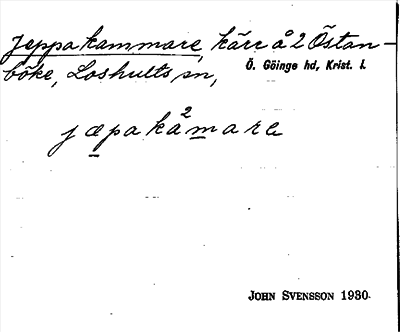 Jeppakammare, kärr å 2 Östan-
böke, Loshults sn, Ö. Göinge hd, Krist. l.
jæpakå²mara
JOHN SVENSSON 1930.